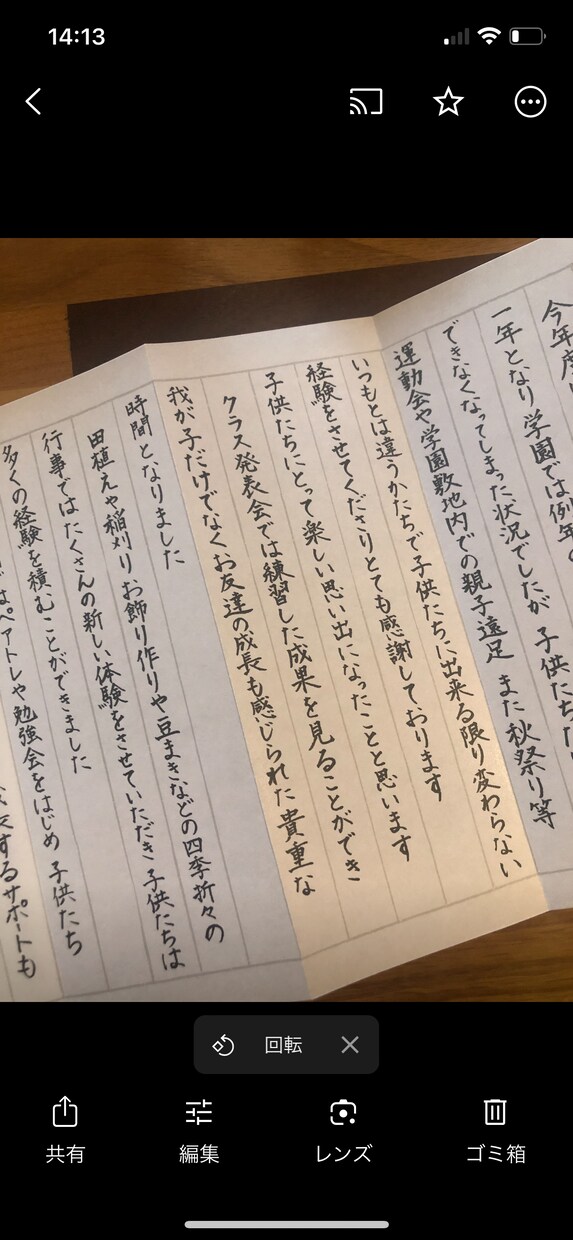 14:13
今年度
一年となり 学園では例年の
できなくなってしまった状況でしたが 子供たち
運動会や学園敷地内での親子遠足 また秋祭り等
いつもとは違うかたちで子供たちに出来る限り変わらない
経験をさせてくださりとても感謝しております
子供たちにとって楽しい思い出になったことと思います
クラス発表会では練習した成果を見ることができ
我が子だけでなくお友達の成長も感じられた貴重な
時間となりました
田植えや稲刈り お飾り作りや豆まきなどの四季折々の
行事では たくさんの新しい体験をさせていただき 子供たちは
多くの経験を積むことができました
はペアトレや勉強会をはじめ 子供たち
するサポートも
回転
共有
編集
レンズ
ゴミ箱